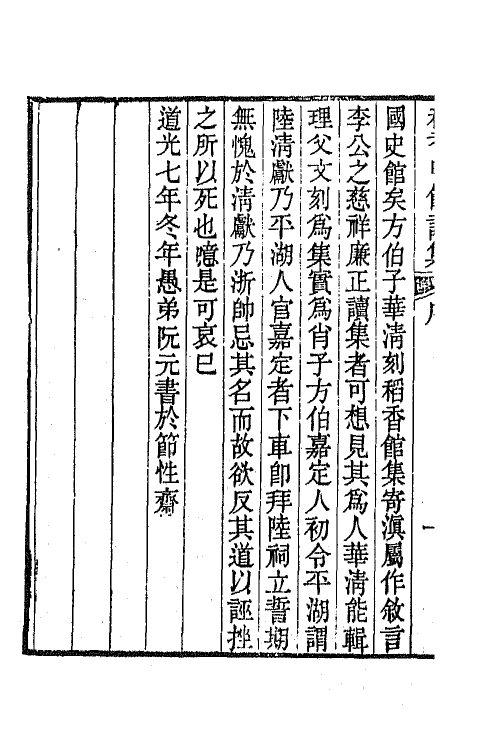 國史館矣方伯子華清刻稻香館集寄滇屬作敘言
李公之慈祥廉正讀集者可想見其爲人華清能輯
理父文刻爲集實爲肖子方伯嘉定人初令平湖謂
陸清獻乃平湖人官嘉定者下車卽拜陸祠立誓期
無愧於清獻乃浙帥忌其名而故欲反其道以誣挫
之所以死也噫是可哀已
道光七年冬年愚弟阮元書於節性齋